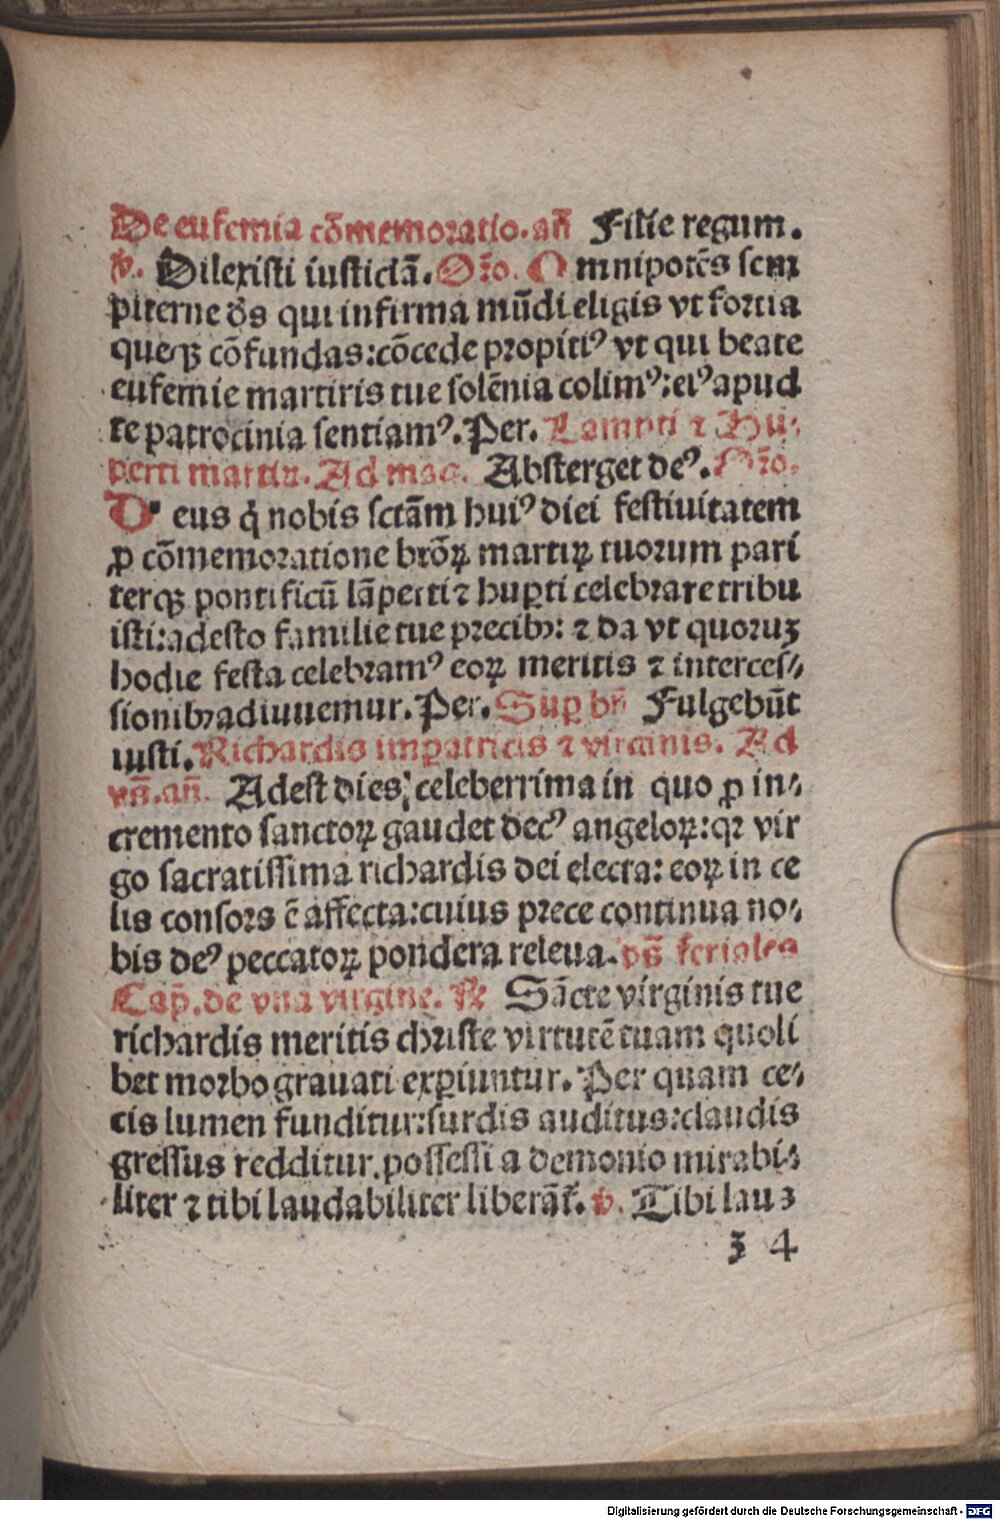 De eufemia cōmemoratio. añ Filie regum.
℣. Dilexisti iusticiā. Orō. Omnipotēs sem
piterne d̄s qui infirma mūdi eligis vt fortia
queqꝫ cōfundas: cōcede propitiꝰ vt qui beate
eufemie martiris tue solēnia colimꝰ: eiꝰ apud
te patrocinia sentiamꝰ. Per. Lamꝑti ⁊ Hu⸗
perti martiꝝ. Ad mag. Absterget deꝰ. Orō.
Deus q̄ nobis sctām huiꝰ diei festiuitatem
ꝓ cōmemoratione btōꝝ martiꝝ tuorum pari
terqꝫ pontificū lāperti ⁊ huꝑti celebrare tribu
isti: adesto familie tue precibꝫ: ⁊ da vt quoruꝫ
hodie festa celebramꝰ eoꝝ meritis ⁊ interces⸗
sionibꝫ adiuuemur. Per. Suꝑ bñ Fulgebūt
iusti. Richardis imꝑatricis ⁊ virginis. Ad
vn̄. añ. Adest dies celeberrima in quo ꝓ in⸗
cremento sanctoꝝ gaudet decꝰ angeloꝝ: qꝛ vir
go sacratissima richardis dei electa: eoꝝ in ce
lis consors ē affecta: cuius prece continua no⸗
bis deꝰ peccatoꝝ pondera releua. p̄s feriales
Cap̄. de vna virgine. ℟ Sācte virginis tue
richardis meritis christe virtutē tuam quoli
bet morbo grauati exꝑiuntur. Per quam ce⸗
cis lumen funditur: surdis auditus: claudis
gressus redditur. possessi a demonio mirabi⸗
liter ⁊ tibi laudabiliter liberāt̄. ℣. Tibi lau⸗
ꝫ 4
Digitalisierung gefördert durch die Deutsche Forschungsgemeinschaft - DFG